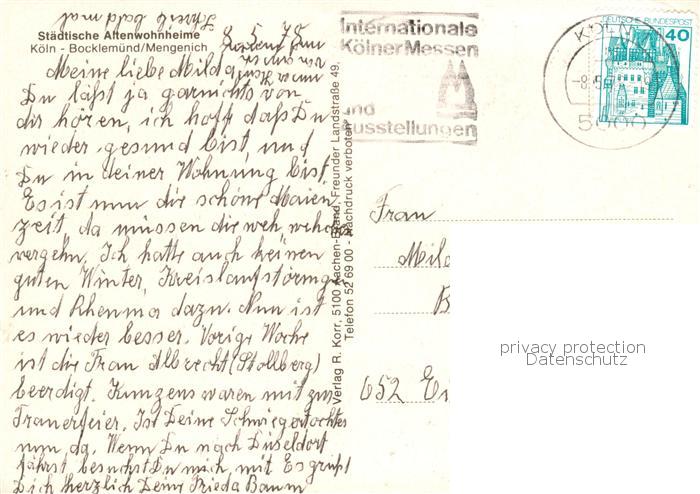 Schreib bald mal
Städtische Altenwohnheime
Köln - Bocklemünd/Mengenich
8. 5. 78
Meine liebe Milda
Du läßt ja garnichts von
dir hören, ich hoff daß Du
wieder gesund bist, und
Du in deiner Wohnung bist.
Es ist nun die schöne Maien
zeit, da müssen die weh, wehs
vergehn. Ich hatte auch keinen
guten Winter, Kreislaufstörunge
und Rheuma dazu. Nun ist
es wieder besser. Vorige Woche
ist die Frau Albrecht (Stollberg)
beerdigt. Kunzens waren mit zur
Trauerfeier. Ist Deine Schwiegertochter
nun da. Wenn Du nach Düseldorf
fährst besuchst Du mich mit Es grüßt
Dich herzlich Deine Frieda Baum
Verlag R. Korr, 5100 Aachen-Brand, Freunder Landstraße 49,
Telefon 52 69 00 - Nachdruck verboten
Internationale
Kölner Messen
und
Ausstellungen
KÖLN
5000
DEUTSCHE BUNDESPOST
40
Frau
Mild
B
652 Ei
privacy protection
Datenschutz